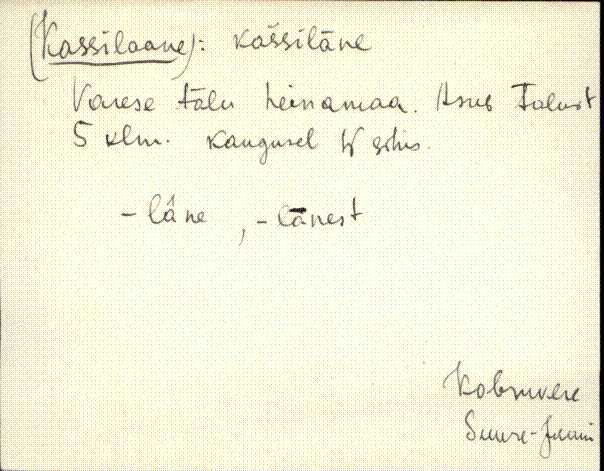 (Kassilaane): kaššilāne
Varese tālu heinamaa. Asub Talust
5 klm. kaugusel W sihis.
-lāne, -lānest
Kobruvere
Suure-Jaani